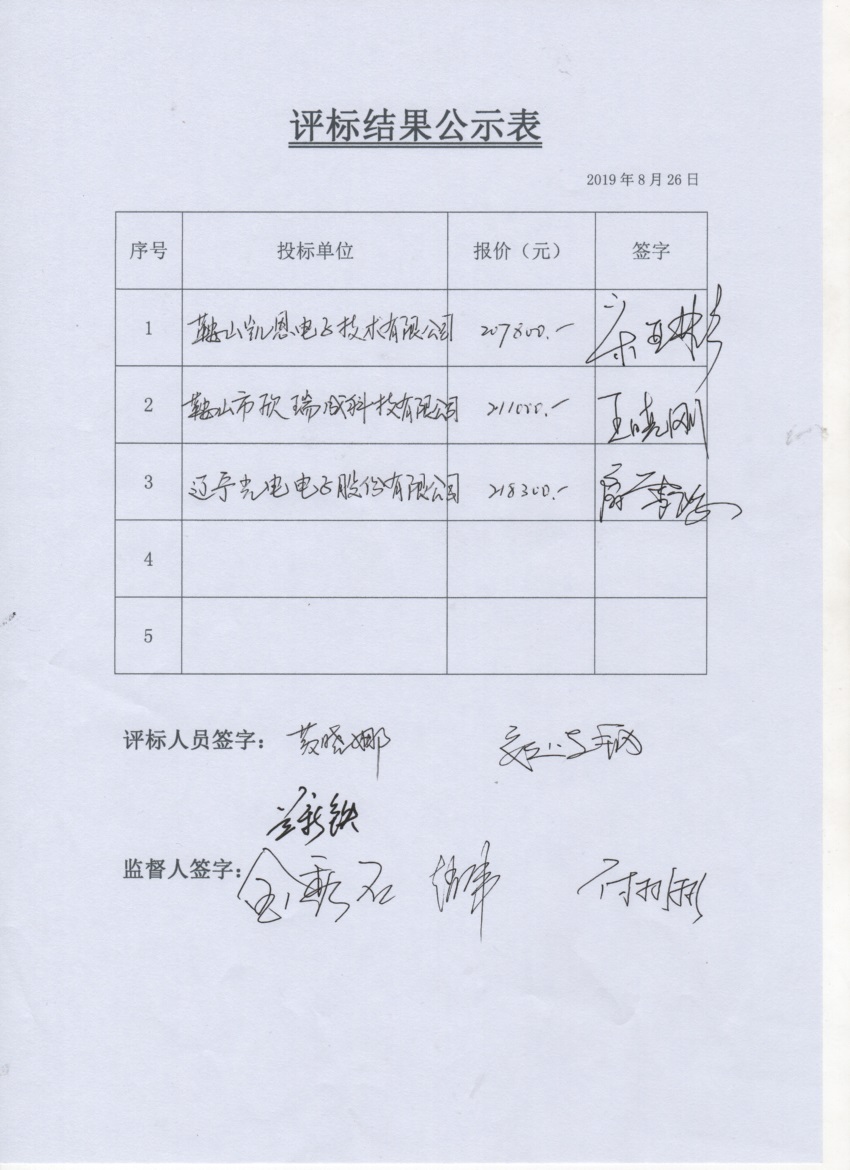 评标结果公示表
2019年8月26日
序号 投标单位 报价（元） 签字
1 鞍山凯恩电子技术有限公司 207800.-
2 鞍山市欣瑞成科技有限公司 211000.- 王晓刚
3 辽宁光电电子股份有限公司 218300.-
4
5
评标人员签字： 黄晓娜
监督人签字：